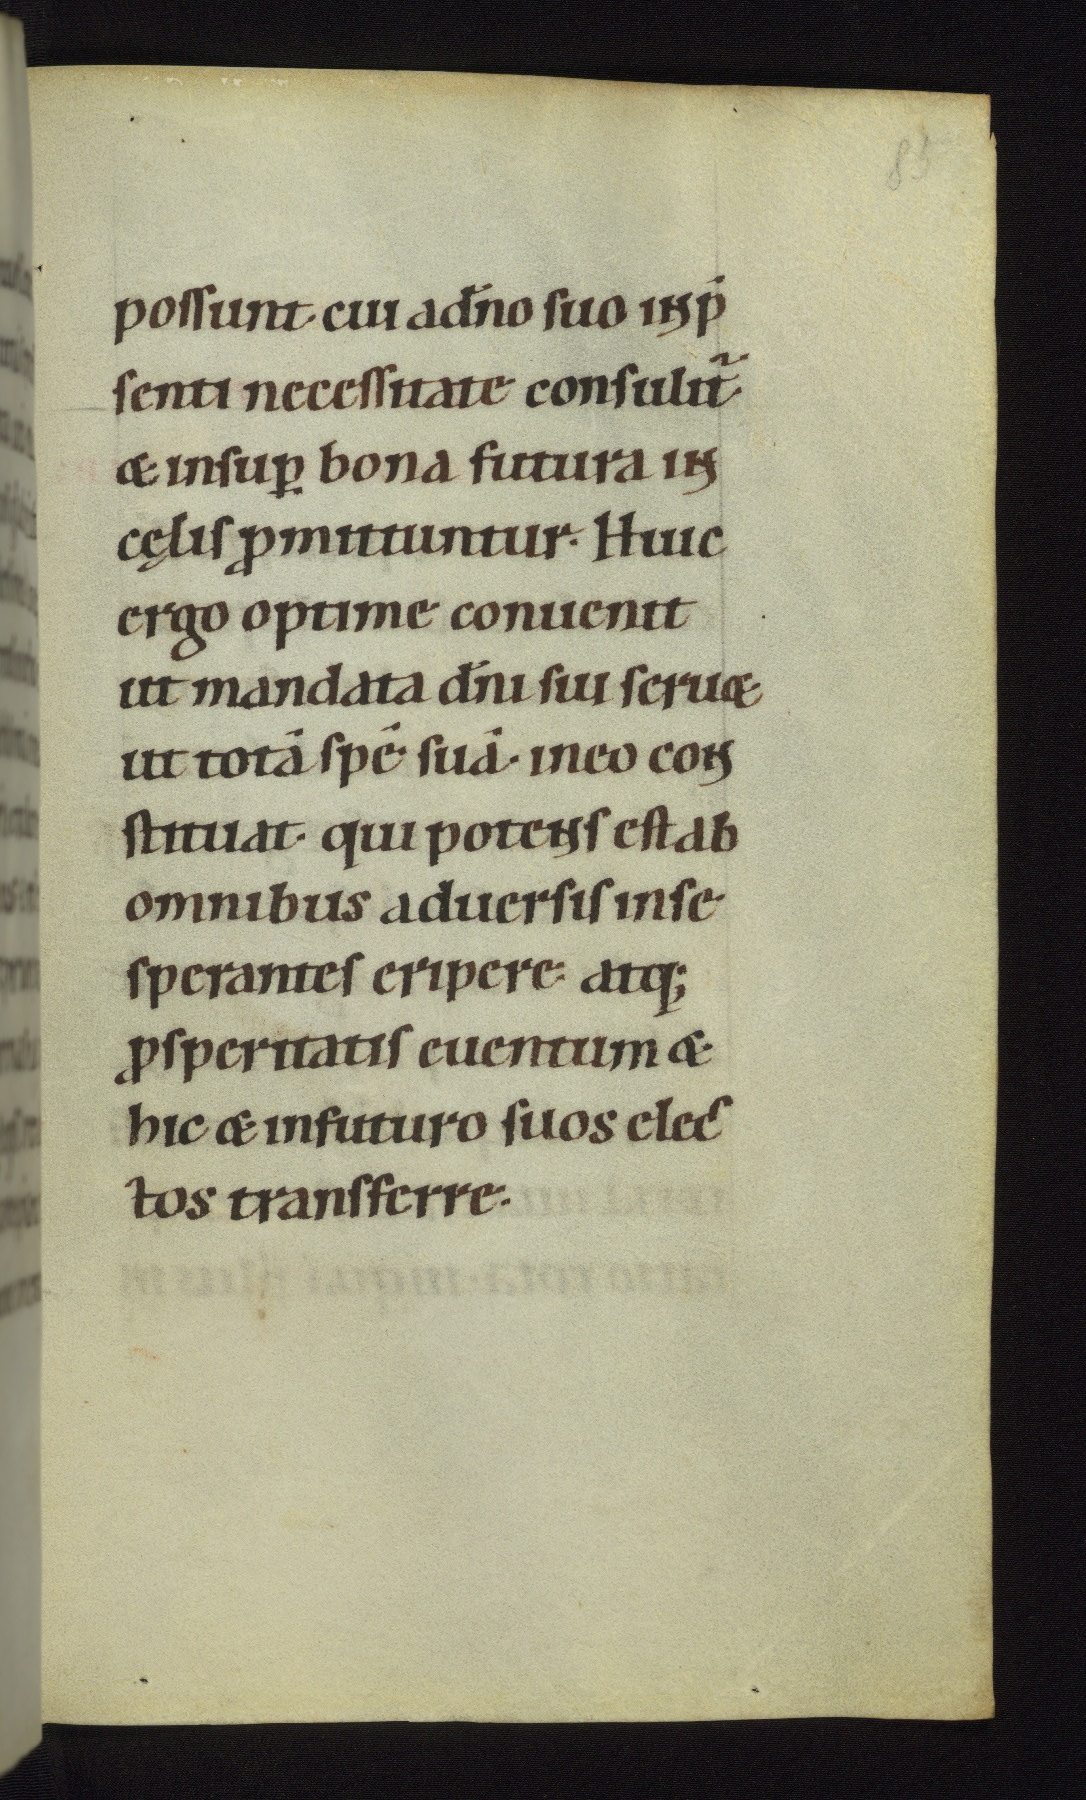 85
possunt· cui a dn̄o suo in p̄
senti necessitate consulit᷑·
& insuꝑ bona futura in
cęlis ꝓmittuntur· Huic
ergo optime conuenit
ut mandata dn̄i sui seru&
ut totā spē suā· in eo con
stituat· qui potens est ab
omnibus aduersis in se
sperantes eripere· atq;
ꝓsperitatis euentum &
hic & in futuro suos elec
tos transferre·